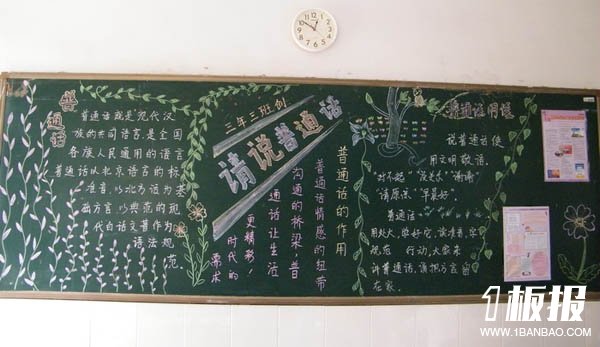 普通话
普通话就是现代汉
族的共同语言,是全国
各族人民通用的语言
普通话以北京语言的标
准音,以北方话为基
础方言,以典范的现
代白话文著作为
语法规
范。
三年三班创
请说普通话
普通话的作用
普通话情感的纽带
沟通的桥梁 普
通话让生活
更精彩!
时代的
要求
普通话
说普通话使
用文明敬语。
“对不起”“没关系”“谢谢”
“请原谅”“早晨好”。
普通话
行动,大家来
讲普通话,请把方言留
在家。
1板报
WWW.1BANBAO.COM